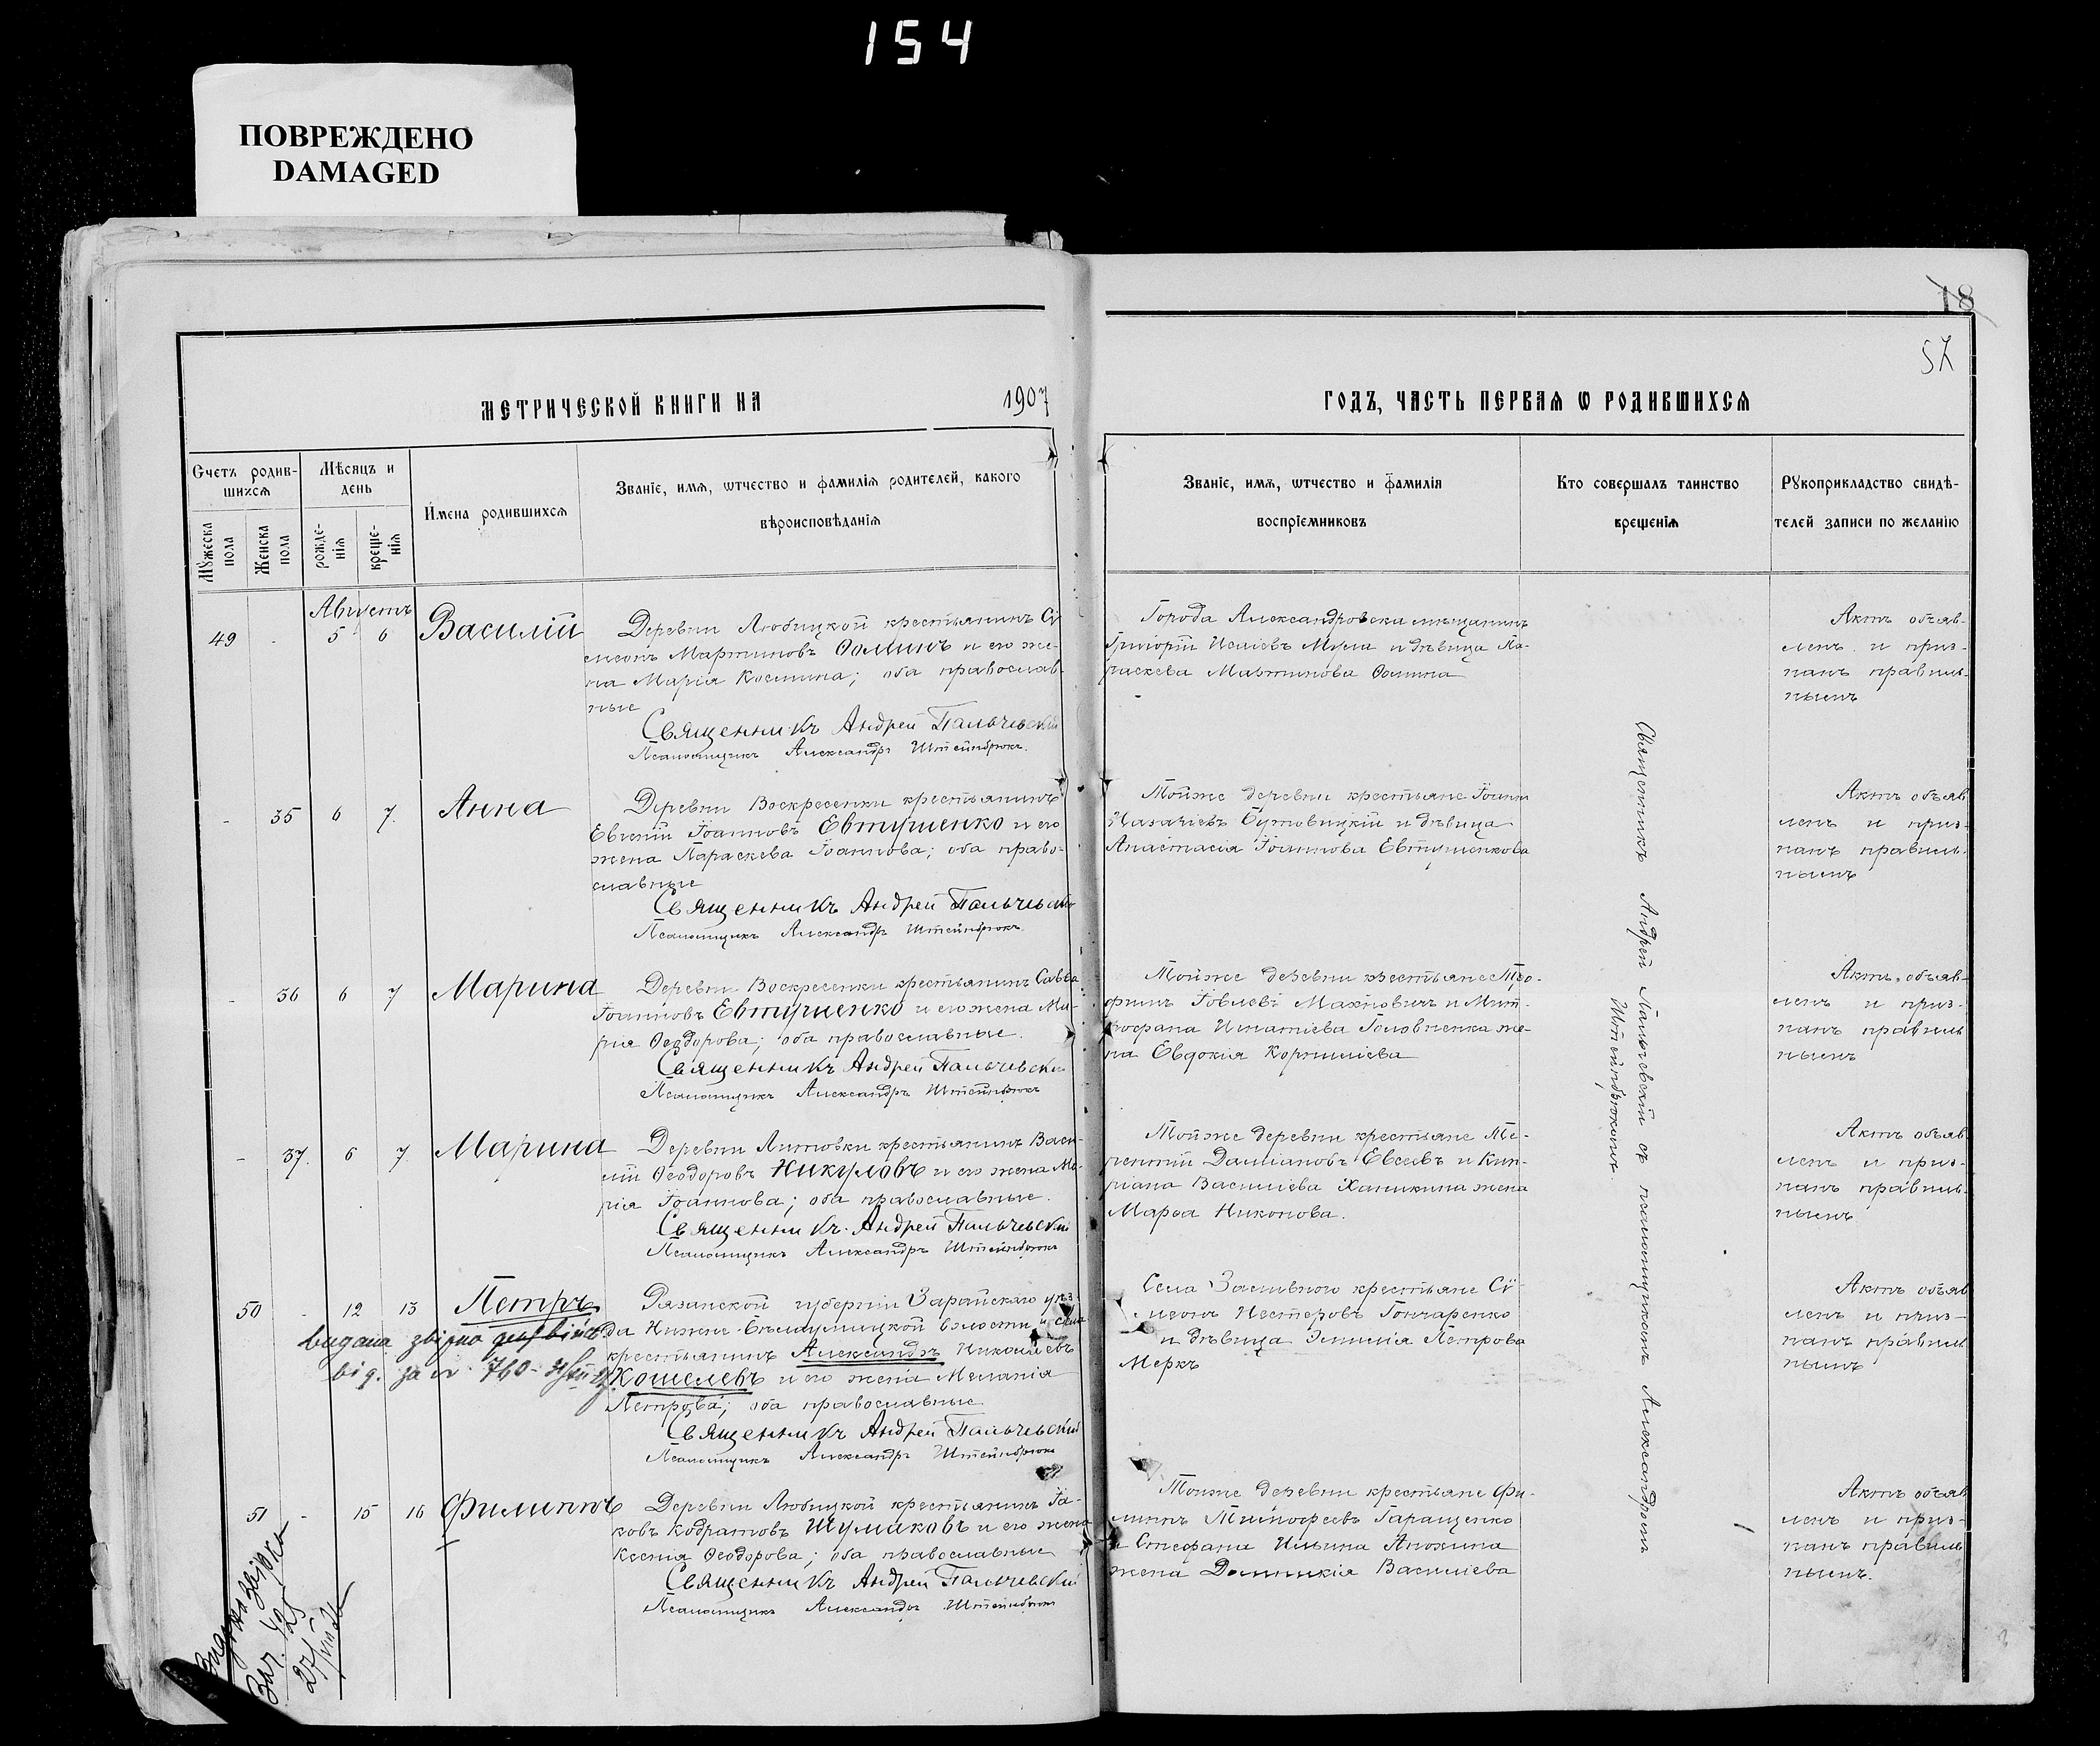 154
ПОВРЕЖДЕНО
DAMAGED
18
57
МЕТРИЧЕСКОЙ КНИГИ НА 1907
ГОДЪ, ЧАСТЬ ПЕРВАЯ Ѡ РОДИВШИХСЯ
Счетъ родив-
шихся
Мѣсяцъ и
день
Имена родившихся
Званіе, имя, ѡтчество и фамилія родителей, какого
вѣроисповѣданія
Званіе, имя, ѡтчество и фамилія
воспріемниковъ
Кто совершалъ таинство
крещенія
Рукоприкладство свидѣ-
телей записи по желанію
Мужеска
пола
Женска
пола
рожде-
нія
креще-
нія
Августъ
49 - 5 6 Василій
Деревни Любицкой крестьянинъ Си
меонъ Мартиновъ Ѳоминъ и его же-
на Марія Космина; оба православ-
ные
Священникъ Андрей Пальчевскій
Псаломщикъ Александръ Штейнбрюкъ.
Города Александровска мѣщанинъ
Григорій Исаіевъ Мума и дѣвица Па-
раскева Мартинова Ѳомина
Актъ объяв-
ленъ и приз-
нанъ правиль-
нымъ
- 35 6 7. Анна
Деревни Воскресенки крестьянинъ
Евгеній Іоанновъ Евтушенко и его
жена Параскева Іоаннова; оба право-
славные
Священникъ Андрей Пальчевскій
Псаломщикъ Александръ Штейнбрюкъ.
Тойже деревни крестьяне Іоаннъ
Бутовицкій и дѣвица
Анастасія Іоаннова Евтушенкова
Актъ объяв
ленъ и приз-
нанъ правиль-
нымъ
- 36 6 7 Марина
Деревни Воскресенки крестьянинъ Савва
Іоанновъ Евтушенко и его жена Ма-
рія Ѳеодорова; оба православные.
Священникъ Андрей Пальчевскій
Псаломщикъ Александръ Штейнбрюкъ
Тойже деревни крестьяне Тро-
фимъ Іовлевъ Махновичъ и Мит-
рофана Игнатіева Головненка же-
на Евдокія Корниліева
Актъ объяв-
ленъ и приз-
нанъ правиль
нымъ
- 37. 6 7 Марина
Деревни Литовки крестьянинъ Васи-
лій Ѳеодоровъ Никуловъ и его жена Ма-
рія Іоаннова; оба православные.
Священникъ Андрей Пальчевскій
Псаломщикъ Александръ Штейнбрюкъ
Тойже деревни крестьяне Те-
рентій Даміановъ Евсеевъ и Кип-
ріана Василіева Ханикина жена
Марѳа Никонова.
Актъ объяв
ленъ и приз-
нанъ правиль-
нымъ
50 - 12 13 Петръ
видана
від. за № 760
Рязанской губерніи Зарайскаго уѣз-
да Нижне-Бѣлоумутской волости и села
крестьянинъ Александръ Николаевъ
Кошелевъ и его жена Меланія
Петрова; оба православные
Священникъ Андрей Пальчевскій
Псаломщикъ Александръ Штейнбрюкъ
Села Засливного крестьяне Си-
меонъ Нестеровъ Гончаренко
и дѣвица Эмилія Петрова
Меркъ
Актъ объяв
ленъ и приз-
нанъ правиль
нымъ
51 - 15 16 Филиппъ
Деревни Любицкой крестьянинъ Іа-
ковъ Кодратовъ Шумаковъ и его жена
Ксенія Ѳеодорова; оба православные
Священникъ Андрей Пальчевскій
Псаломщикъ Александръ Штейнбрюкъ
Тойже деревни крестьяне Фи-
липпъ Тимоѳеевъ Гаращенко
и Стефана Ильина Анохина
жена Домникія Василіева
Актъ объяв
ленъ и приз-
нанъ правиль
нымъ.
Священникъ Андрей Пальчевскій съ псаломщикомъ Александромъ
Штейнбрюкомъ.